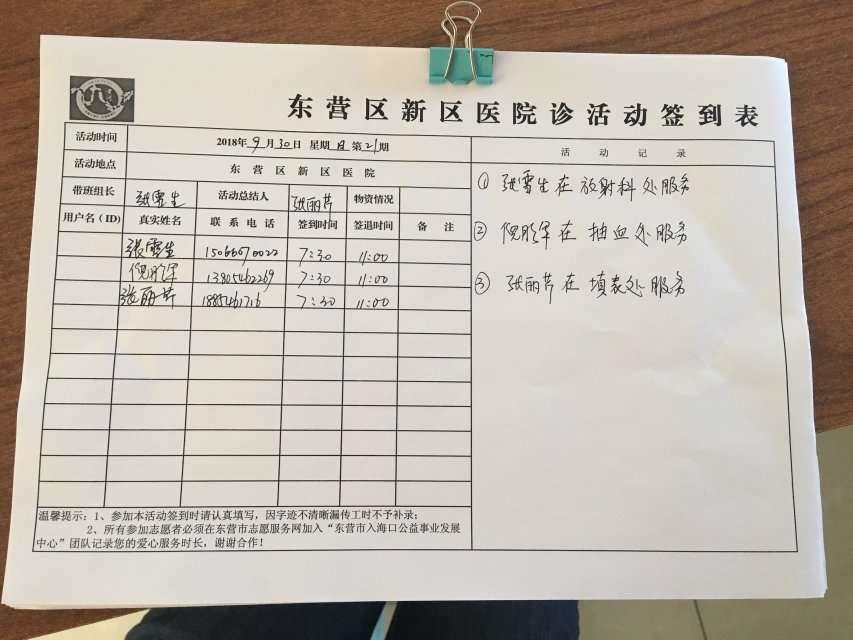 东营区新区医院诊活动签到表
活动时间 2018年9月30日 星期日 第21期
活动地点 东营区新区医院
带班组长 张雪生 活动总结人 张丽芹 物资情况
用户名（ID） 真实姓名 联系电话 签到时间 签退时间 备注
张雪生 15066670022 7:30 11:00
13805462269 7:30 11:00
张丽芹 7:30 11:00
温馨提示：1、参加本活动签到时请认真填写，因字迹不清晰漏传工时不予补录；
2、所有参加志愿者必须在东营市志愿服务网加入“东营市入海口公益事业发展
中心”团队记录您的爱心服务时长，谢谢合作！
活动记录
① 张雪生在放射科处服务
② 在抽血处服务
③ 张丽芹在填表处服务